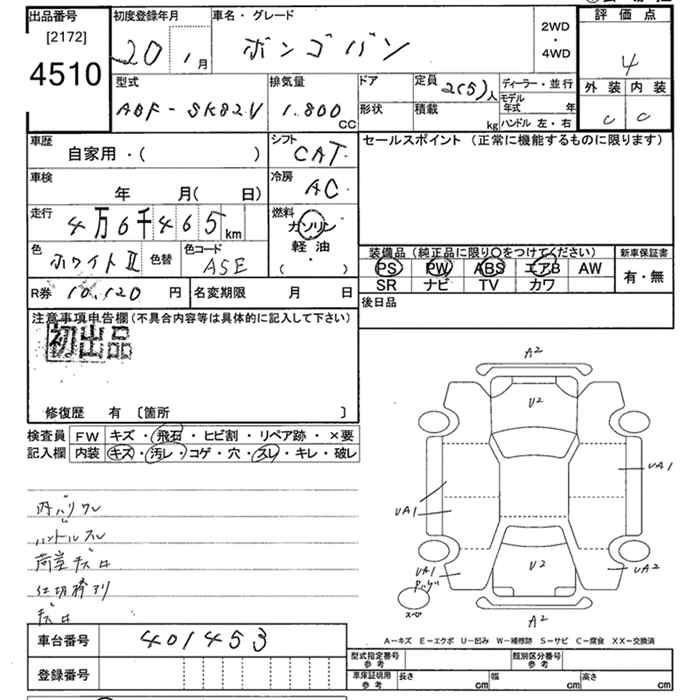 出品番号
[2172]
4510
初度登録年月
20 1月
車名・グレード
ボンゴバン
2WD
・
4WD
評価点
4
外装 内装
C C
型式
ABF-SK82V
排気量
1.800
CC
ドア
形状
定員
2(5)人
積載
kg
ディーラー・並行
モデル
年式 年
ハンドル 左・右
車歴
自家用・( )
シフト
CAT
セールスポイント (正常に機能するものに限ります)
車検
年 月( 日)
冷房
AC
走行
4万6千465km
燃料
ガソリン
軽油・
( )
色
ホワイトII
色替
色コード
A5E
装備品(純正品に限り○をつけてください)
PS PW ABS エアB AW
SR ナビ TV カワ
新車保証書
有・無
R券 10,120 円
名変期限 月 日
後日品
注意事項申告欄(不具合内容等は具体的に記入して下さい)
初出品
修復歴 有 〔箇所 〕
検査員
記入欄
FW キズ・飛石・ヒビ割・リペア跡・×要
内装 キズ・汚レ・コゲ・穴・スレ・キレ・破レ
内バリワレ
ハンドルスレ
荷室キズ
A2
U2
UA1
UA1
UA1
U2
UA2
A2
スペア
A-キズ E-エクボ U-凹み W-補修跡 S-サビ C-腐食 XX-交換済
車台番号
401453
登録番号
型式指定番号
参考
類別区分番号
参考
車庫証明用
参考
長さ cm
幅 cm
高さ cm